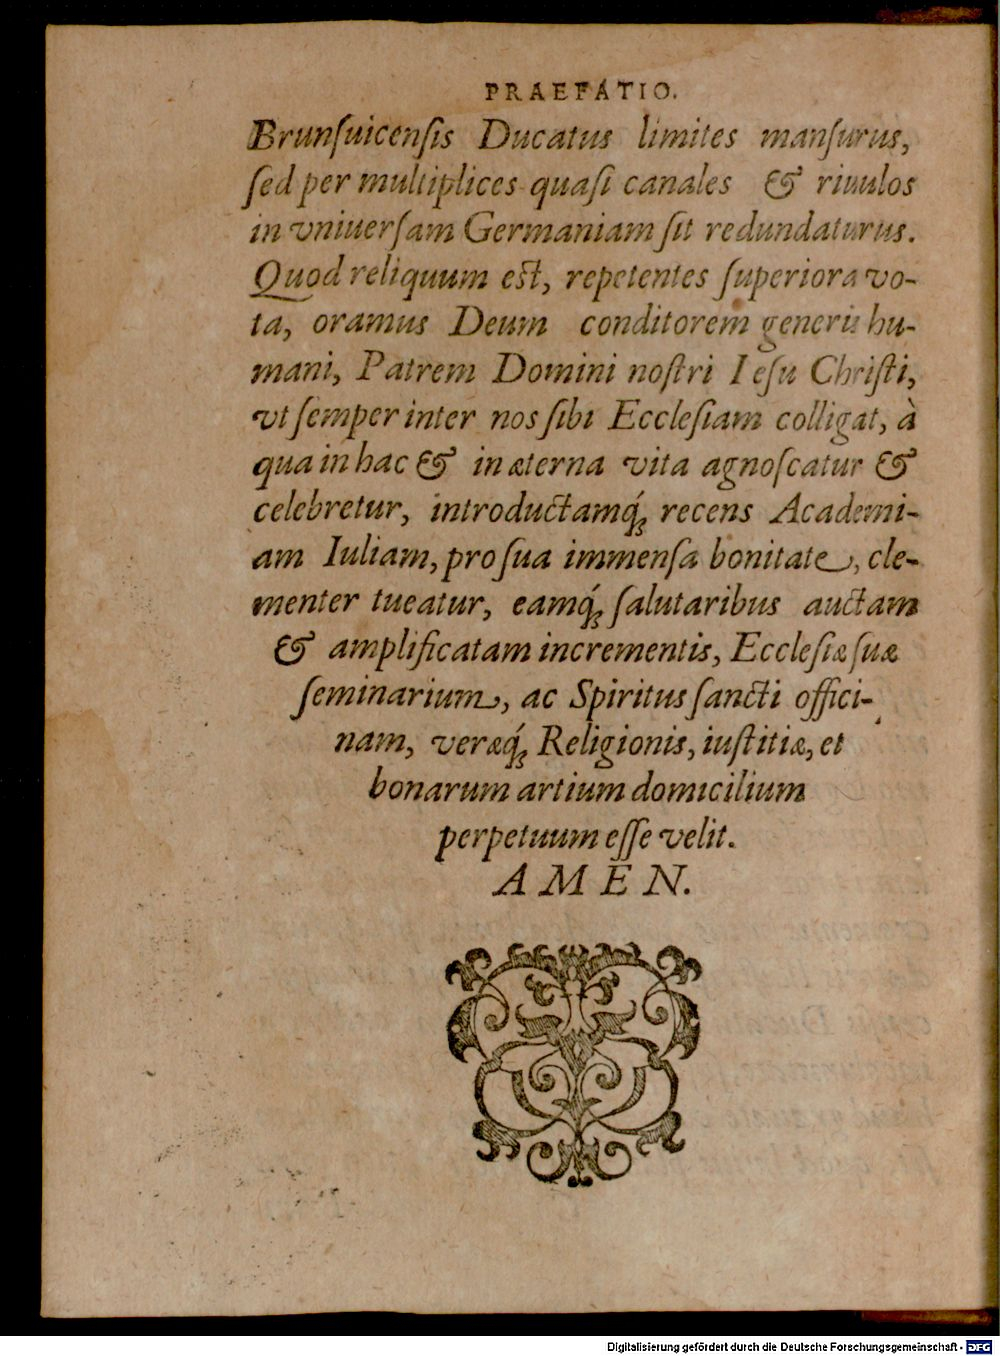 PRAEFATIO.
Brunſuicenſis Ducatus limites manſurus,
ſed per multiplices quaſi canales & riuulos
in vniuerſam Germaniam ſit redundaturus.
Quod reliquum est, repetentes ſuperiora vo-
ta, oramus Deum conditorem generis hu-
mani, Patrem Domini noſtri Ieſu Chriſti,
vt ſemper inter nos ſibi Eccleſiam colligat, à
qua in hac & in æterna vita agnoſcatur &
celebretur, introductamq́ꝫ recens Academi-
am Iuliam, pro ſua immenſa bonitate, cle-
menter tueatur, eamq́ꝫ ſalutaribus auctam
& amplificatam incrementis, Eccleſiæ ſuæ
ſeminarium, ac Spiritus ſancti offici-
nam, veræq́ꝫ Religionis, iuſtitiæ, et
bonarum artium domicilium
perpetuum eſſe velit.
AMEN.
Digitalisierung gefördert durch die Deutsche Forschungsgemeinschaft - DFG